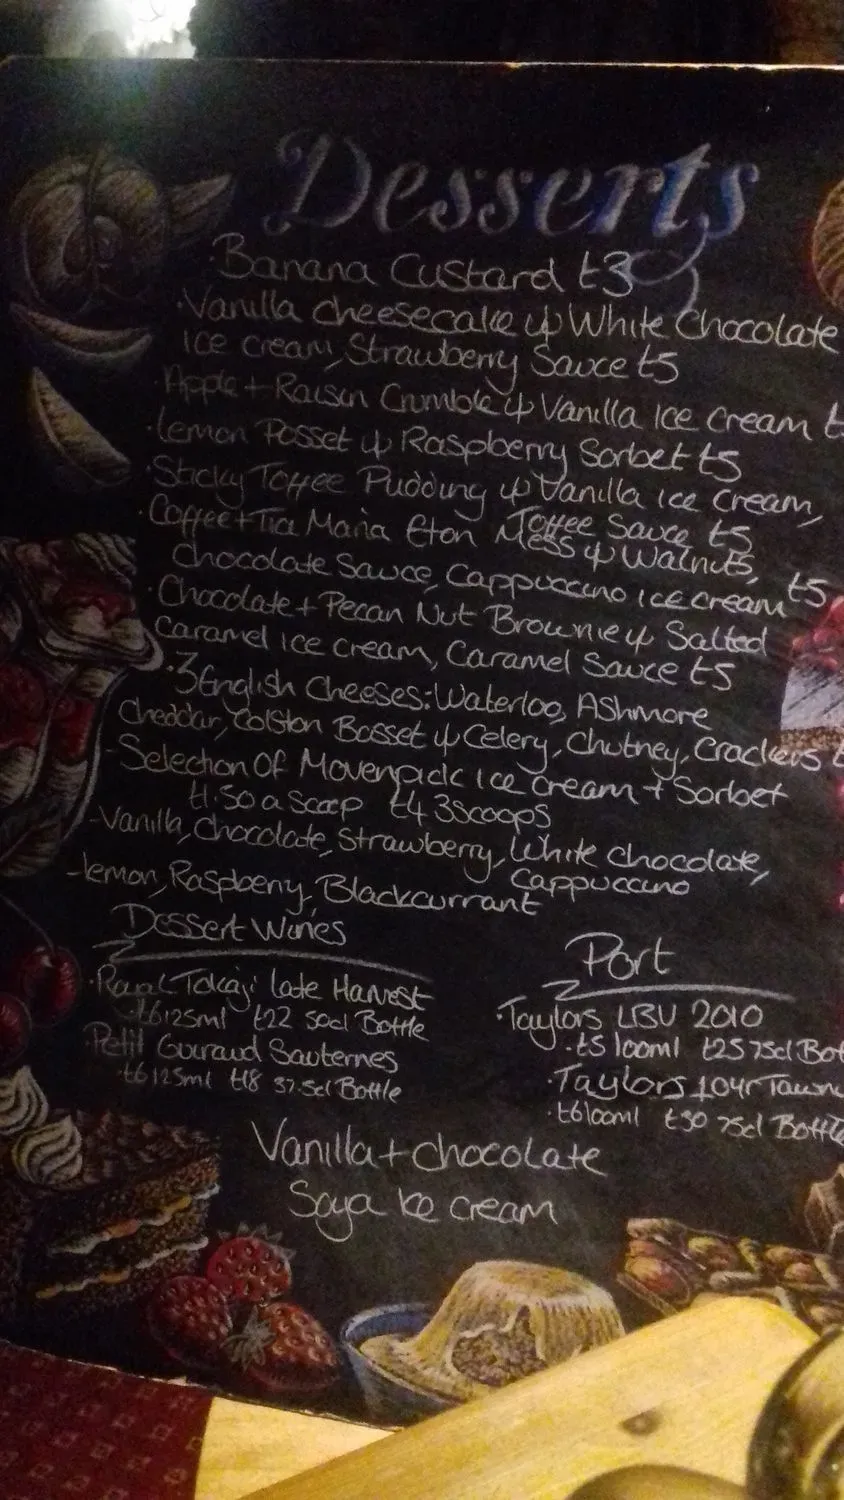 Desserts
· Banana Custard £3
· Vanilla cheesecake w White Chocolate
Ice cream, Strawberry Sauce £5
· Apple + Raisin Crumble w Vanilla Ice cream £
· Lemon Posset w Raspberry Sorbet £5
· Sticky Toffee Pudding w Vanilla ice cream,
Toffee Sauce £5
· Coffee + Tia Maria Eton Mess w Walnuts,
Chocolate Sauce, Cappuccino ice cream £5
· Chocolate + Pecan Nut Brownie w Salted
Caramel ice cream, Caramel Sauce £5
· 3 English Cheeses: Waterloo, Ashmore
Cheddar, Colston Basset w Celery, Chutney, Crackers £
- Selection Of Movenpick ice cream + Sorbet
£1.50 a Scoop £4 3 Scoops
- Vanilla, Chocolate, Strawberry, White chocolate,
Cappuccino
- lemon, Raspberry, Blackcurrant
Dessert Wines
· Royal Tokaji late Harvest
£6 125ml £22 50cl Bottle
· Petit Guiraud Sauternes
· £6 125ml £18 37.5cl Bottle
Port
· Taylors LBV 2010
· £5 100ml £25 75cl Bot
· Taylors 10yr Tawn
· £6 100ml £30 75cl Bottle
Vanilla + chocolate
Soya Ice cream